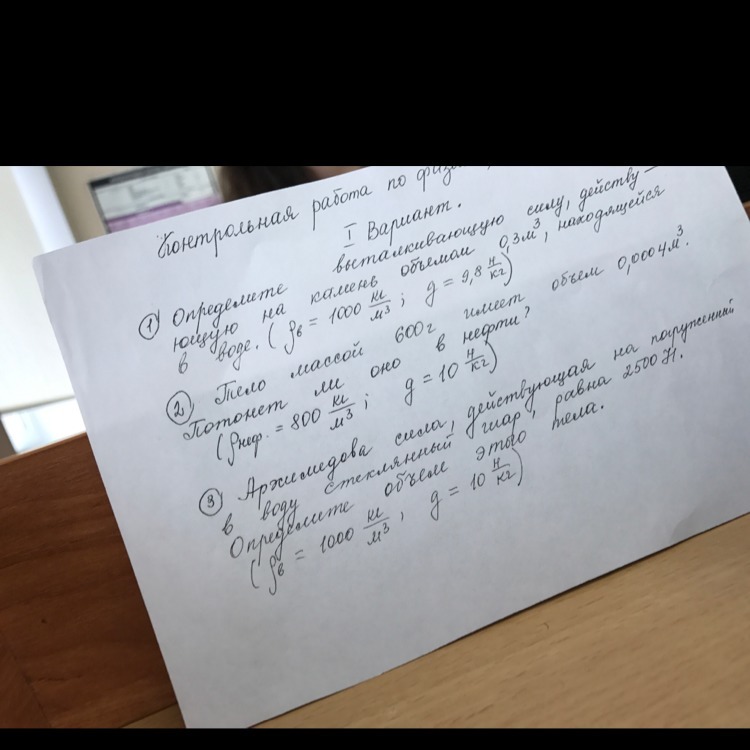 Контрольная работа по физи
I Вариант.
① Определите выталкивающую силу, действу-
ющую на камень объемом 0,3м³, находящейся
в воде. (ρв = 1000 кг/м³; g = 9,8 н/кг)
② Тело массой 600г имеет объем 0,0004м³.
Потонет ли оно в нефти?
(ρнеф. = 800 кг/м³; g = 10 н/кг)
③ Архимедова сила, действующая на погруженный
в воду стеклянный шар, равна 2500 Н.
Определите объем этого тела.
(ρв = 1000 кг/м³; g = 10 н/кг)